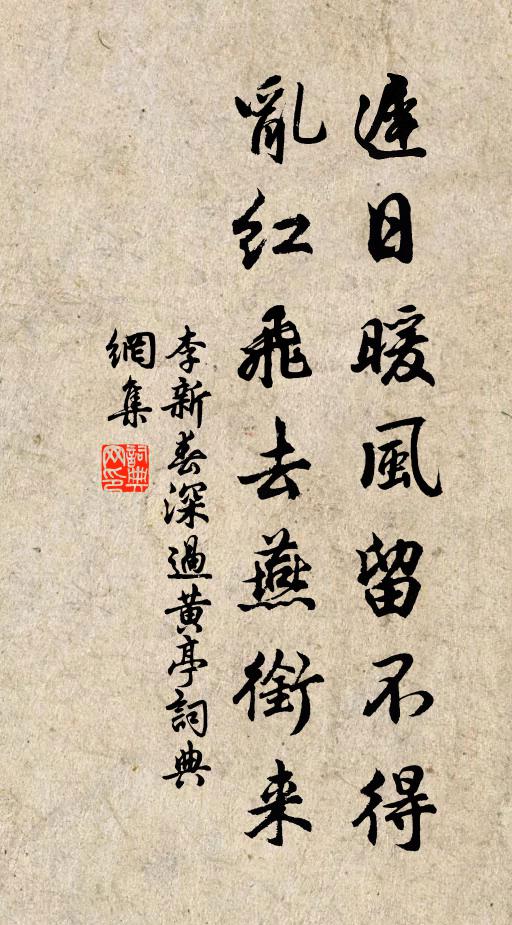 遲日暖風留不得
亂紅飛去燕銜来
李新春深過黄亭詞典
網集
詞典
网印